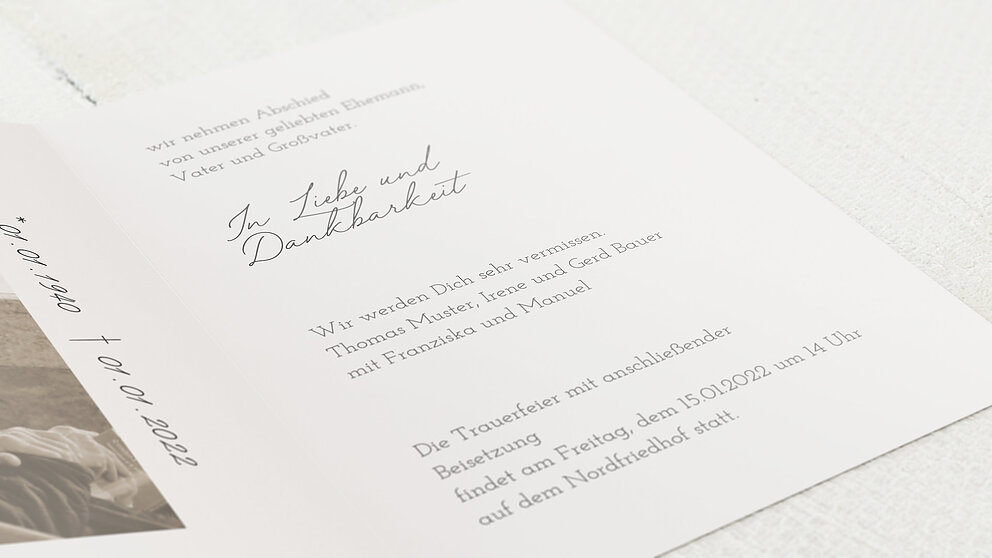 *01.01.1940 †01.01.2022
wir nehmen Abschied
von unserer geliebten Ehemann,
Vater und Großvater.
In Liebe und
Dankbarkeit
Wir werden Dich sehr vermissen.
Thomas Muster, Irene und Gerd Bauer
mit Franziska und Manuel
Die Trauerfeier mit anschließender
Beisetzung
findet am Freitag, dem 15.01.2022 um 14 Uhr
auf dem Nordfriedhof statt.